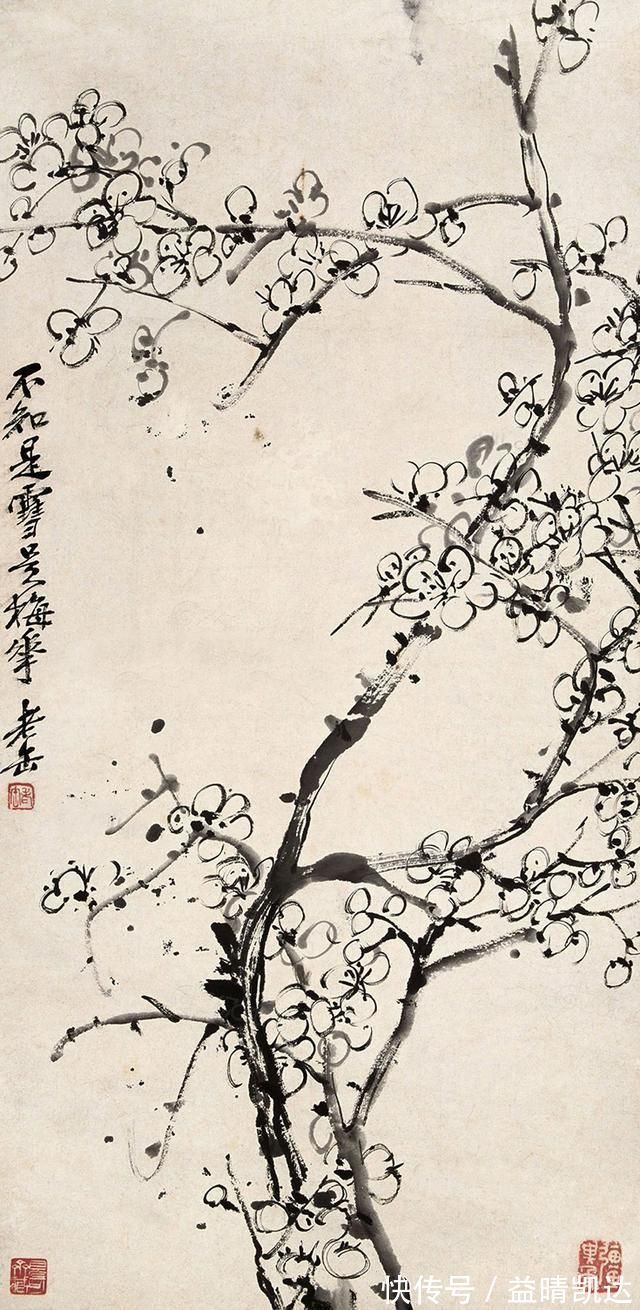 不知是雪是梅華
老缶
快传号 / 益晴凯达